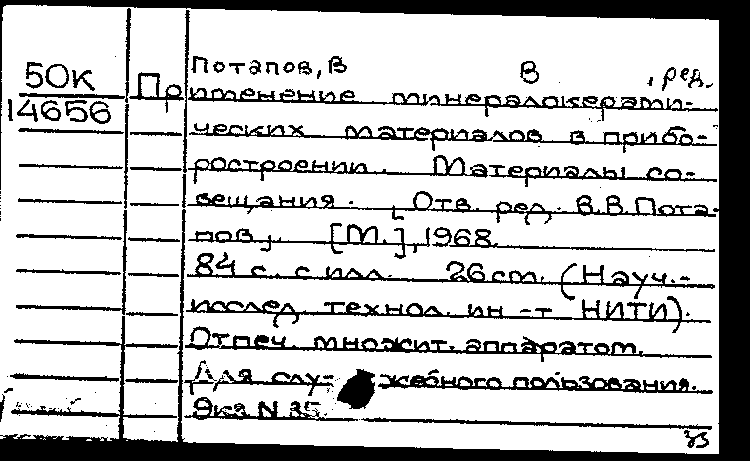 Потапов, В В , ред.
50К
14656
Применение минералокерами-
ческих материалов в прибо-
ростроении. Материалы со-
вещания. [Отв. ред. В.В.Пота-
пов]. [М.], 1968.
84 с. с илл. 26 cm. (Науч.-
исслед. технол. ин-т НИТИ).
Отпеч. множит. аппаратом.
Для слу- жебного пользования.
Экз N 35.